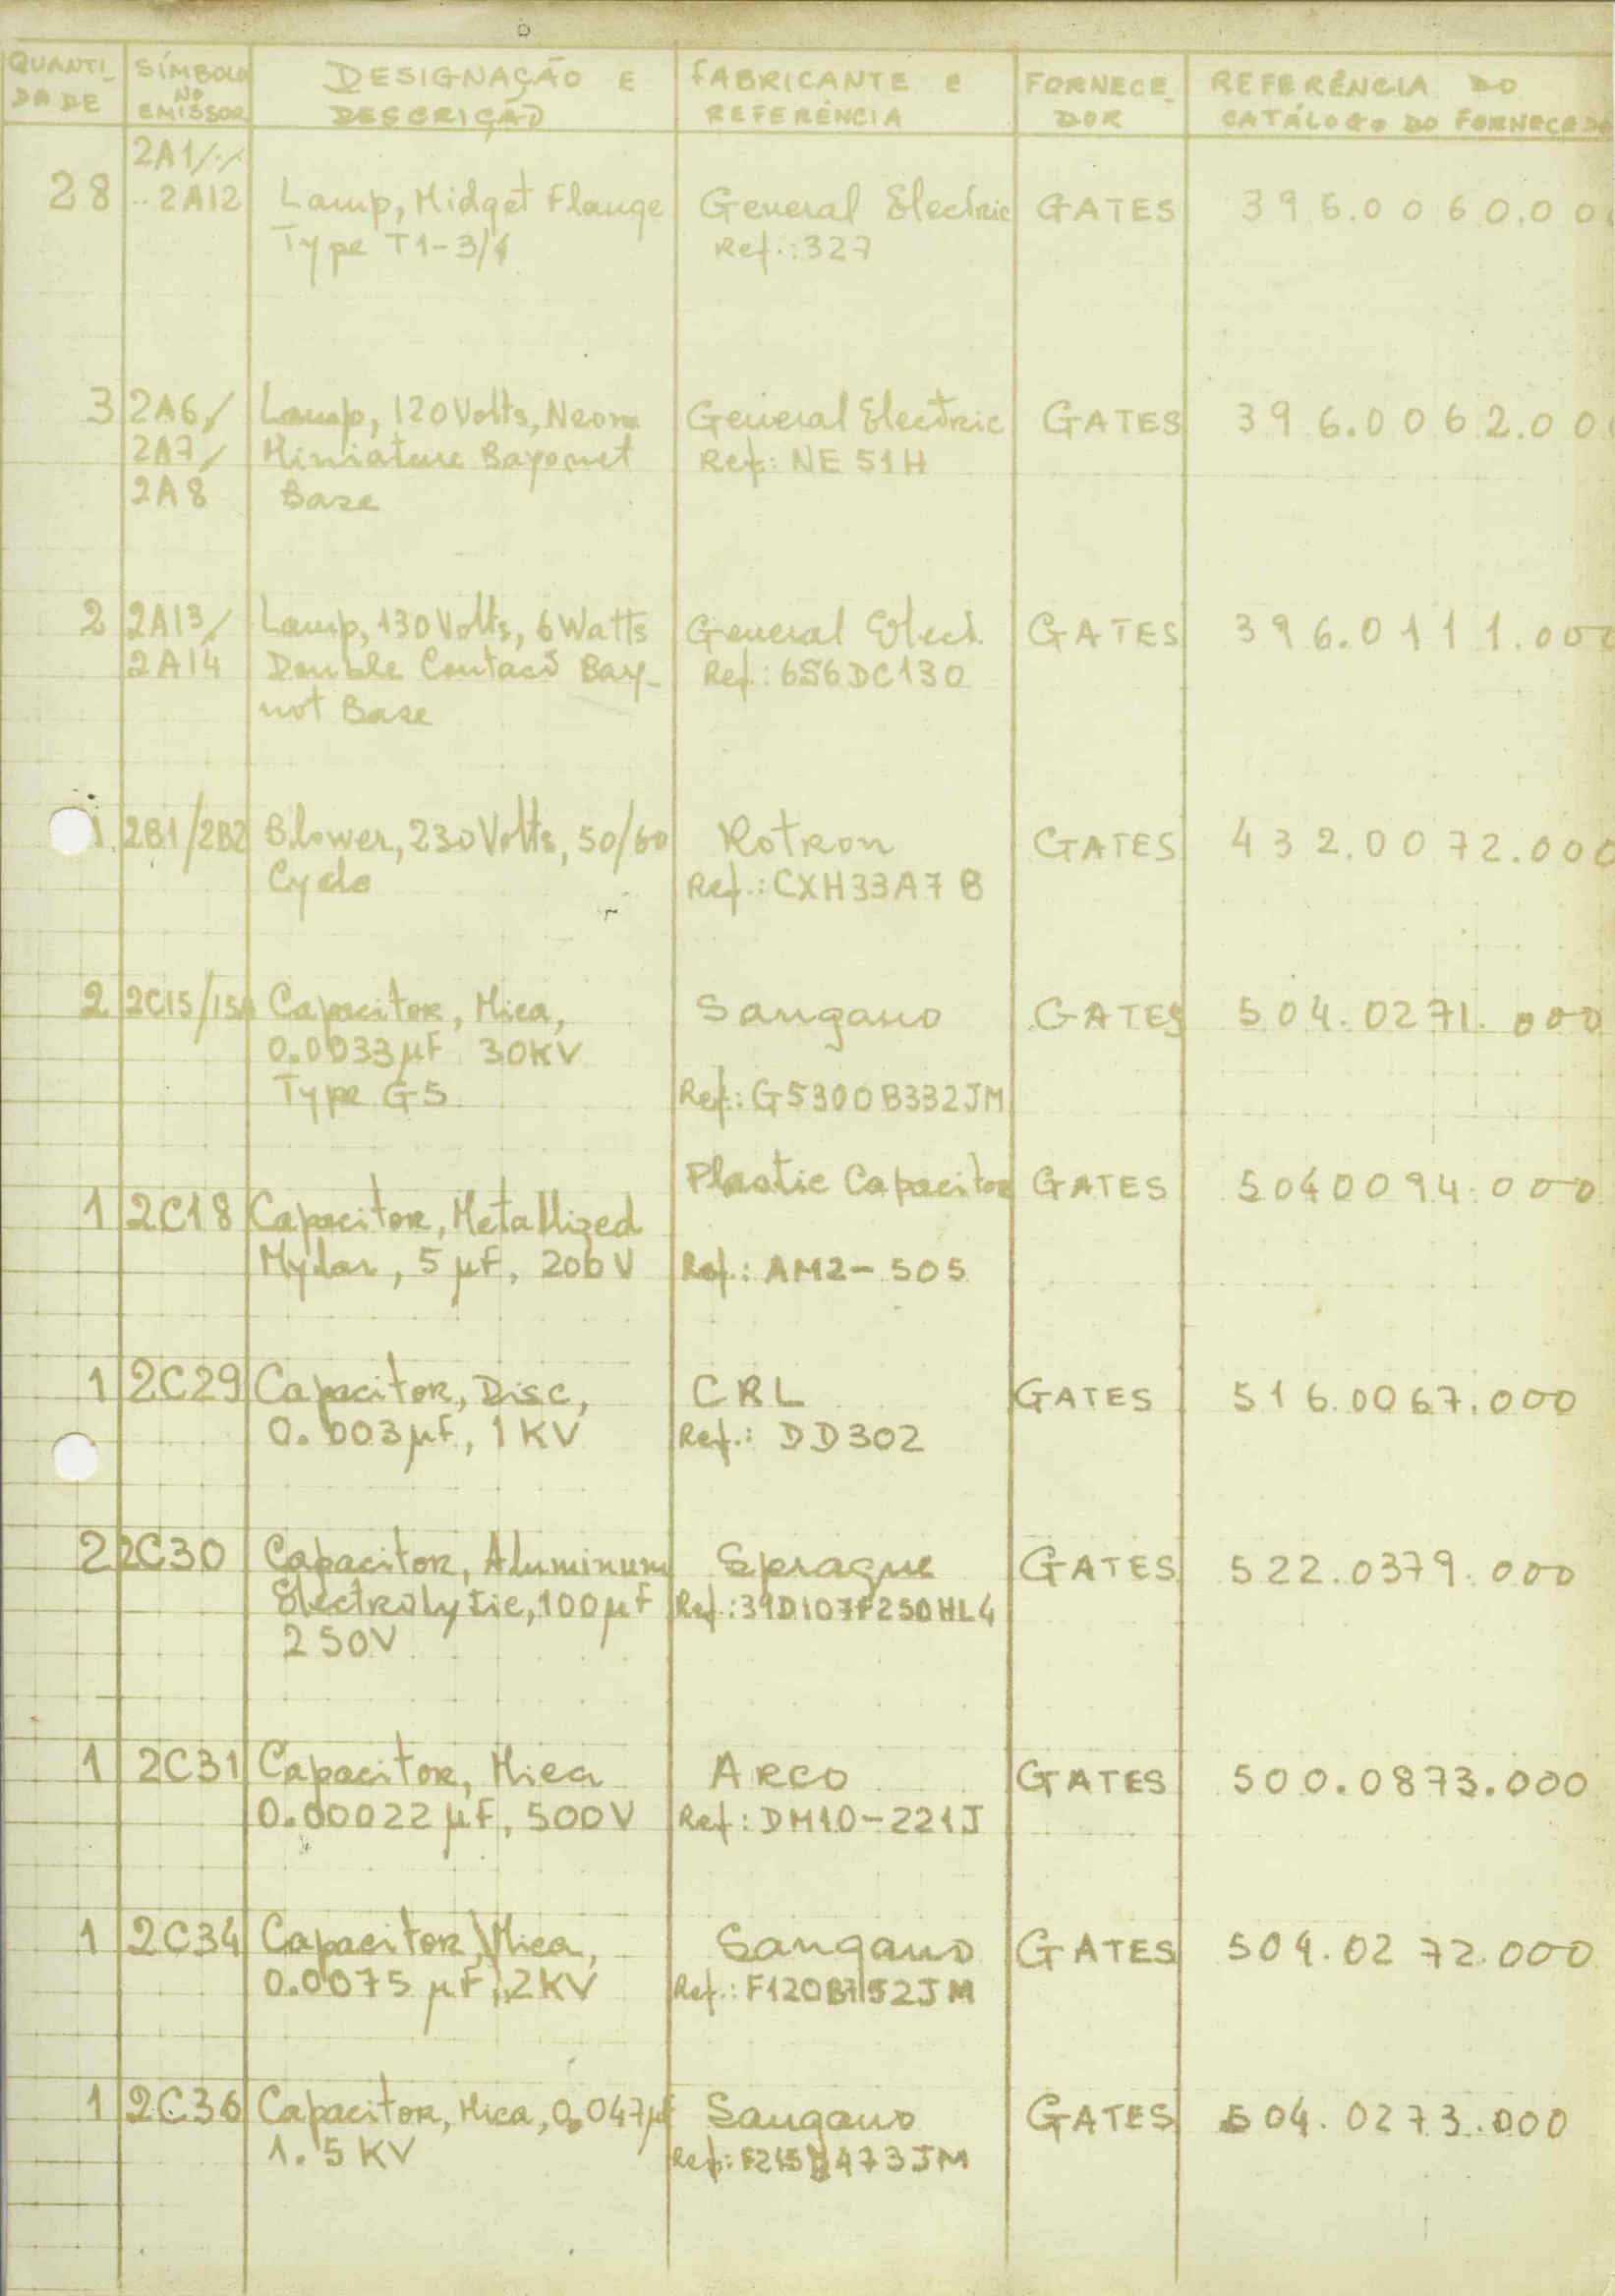 QUANTI- DADE | SÍMBOLO NO EMISSOR | DESIGNAÇÃO E DESCRIÇÃO | FABRICANTE e REFERÊNCIA | FORNECE- DOR | REFERÊNCIA DO CATÁLOGO DO FORNECEDO
2A1/./.
28 ..2A12 Lamp, Midget Flange General Electric GATES 396.0060.00
Type T1-3/4 Ref.:327
3 2A6/ Lamp, 120Volts, Neon General Electric GATES 396.0062.00
2A7/ Miniature Bayonet Ref: NE 51H
2A8 Base
2 2A13/ Lamp, 130Volts, 6Watts General Elect. GATES 396.0111.000
2A14 Double Contact Bay-
Ref.: 6S6DC130
not Base
1 2B1/2B2 Blower, 230Volts, 50/60 Rotron GATES 432.0072.000
Cyclo Ref.: CXH33A7B
2 2C15/15A Capacitor, Mica, Sangano GATES 504.0271.000
0.0033µF 30KV
Type G5 Ref.: G5300B332JM
Plastic Capacitor GATES 5040094.000
1 2C18 Capacitor, Metallized
Mylar, 5 µF, 200V Ref.: AM2-505
1 2C29 Capacitor, Disc, CRL GATES 516.0067.000
0.003µF, 1KV Ref.: DD302
2 2C30 Capacitor, Aluminum Sprague GATES 522.0379.000
Electrolytic, 100µF Ref.: 39D107F250HL4
250V
1 2C31 Capacitor, Mica ARCO GATES 500.0873.000
0.00022µF, 500V Ref: DM10-221J
1 2C34 Capacitor, Mica, Sangano GATES 504.0272.000
0.0075 µF, 2KV Ref.: F120B752JM
1 2C36 Capacitor, Mica, 0.047µF Sangano GATES 504.0273.000
1.5KV Ref.: F215B473JM